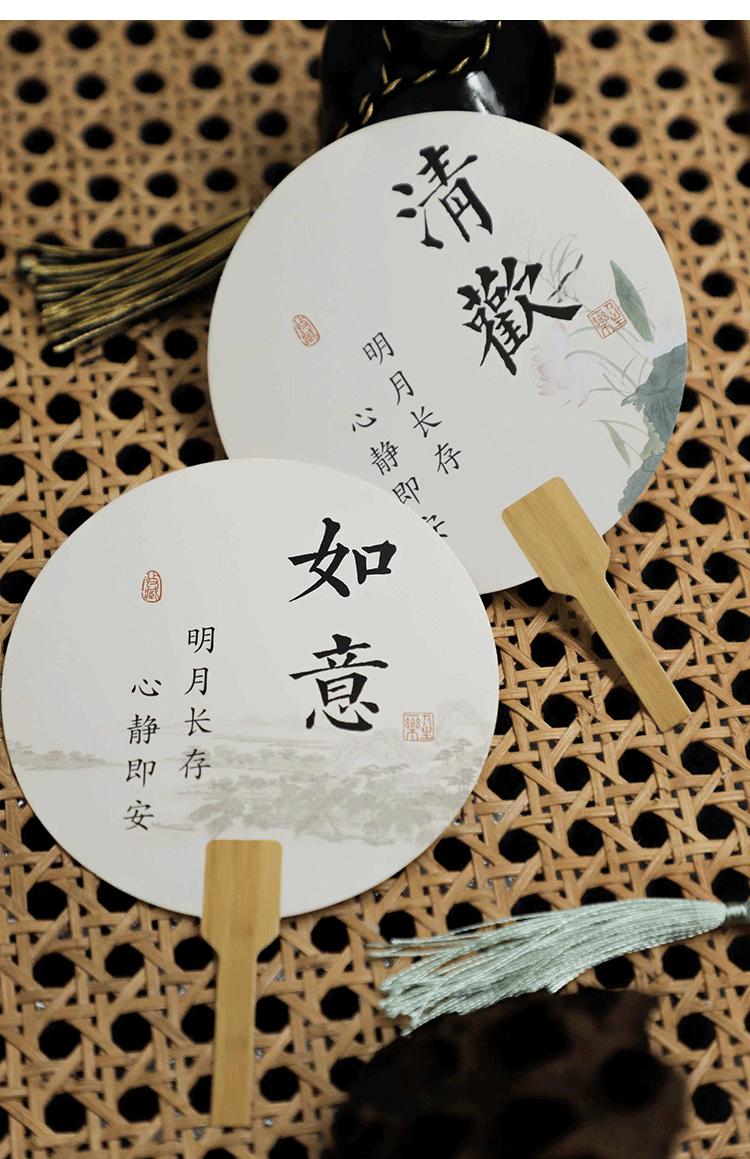 清歡
明月长存
心静即安
如意
明月长存
心静即安